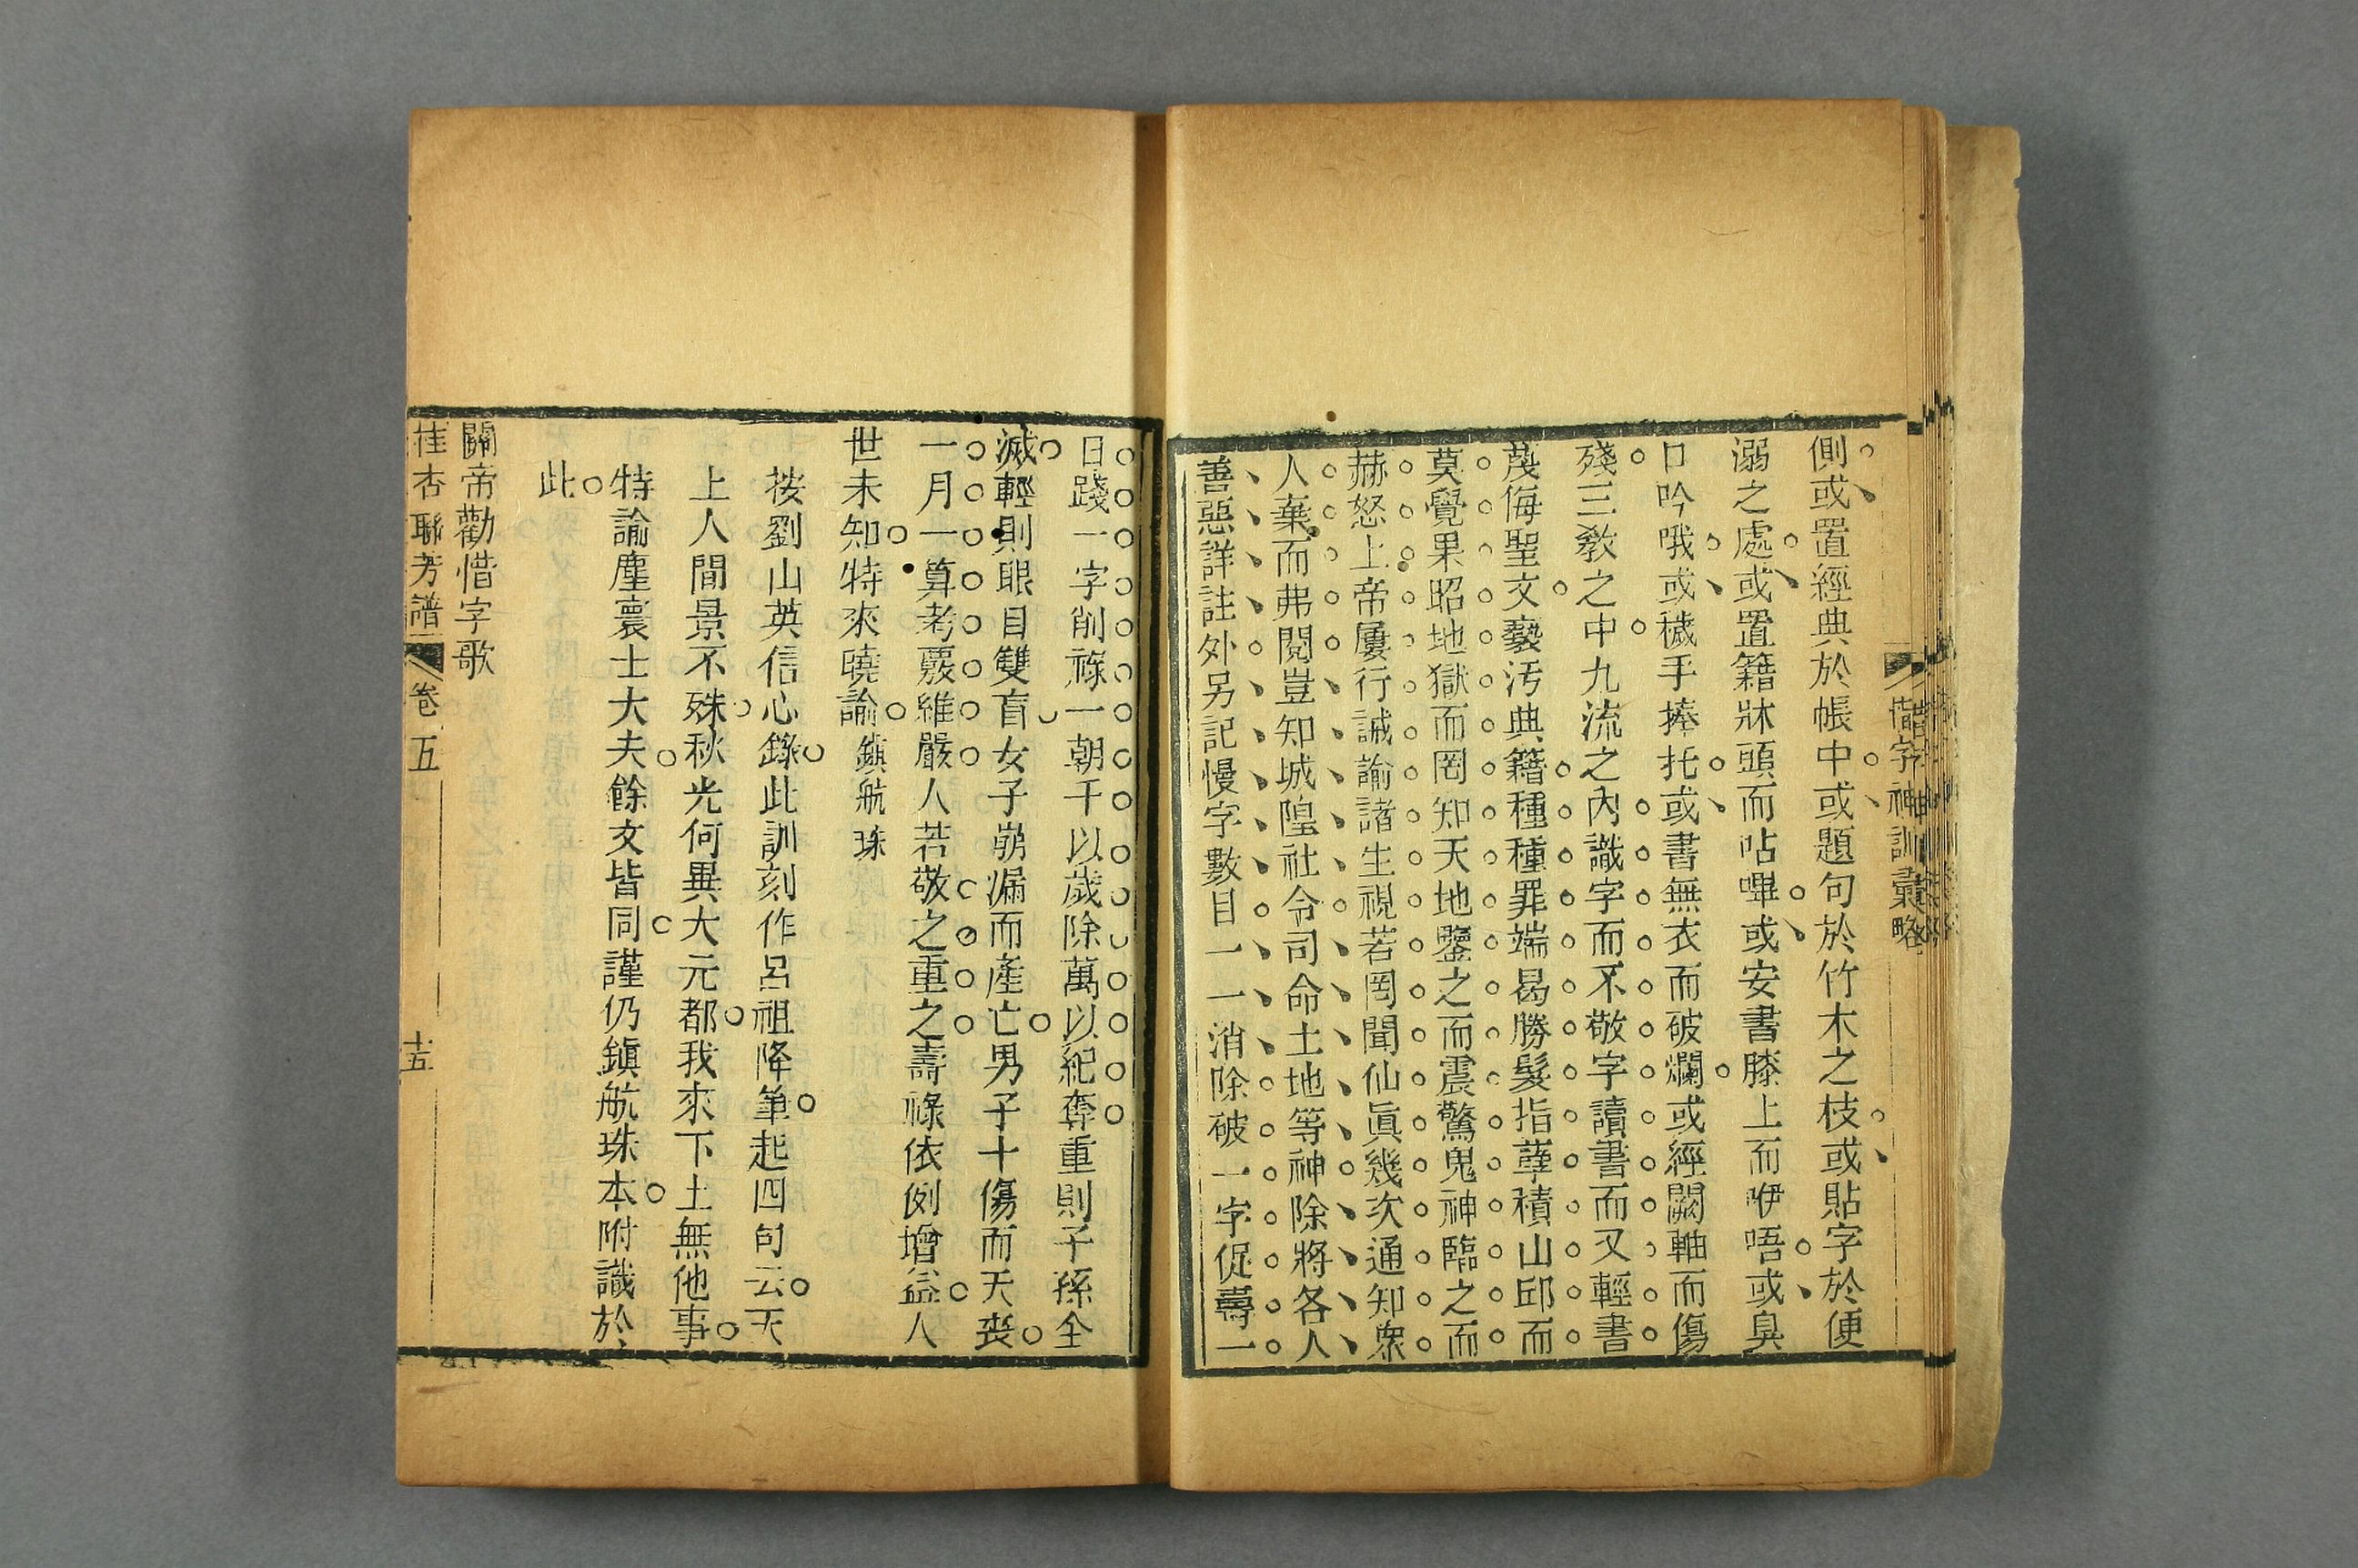 惜字神訓彙略
側或置經典於帳中或題句於竹木之枝或貼字於便
溺之處或置籍牀頭而呫嗶或安書膝上而咿唔或臭
口吟哦或穢手捧托或書無衣而破爛或經闕軸而傷
殘三敎之中九流之內識字而不敬字讀書而又輕書
蔑侮聖文褻汚典籍種種罪端曷勝髮指孽積山邱而
莫覺果昭地獄而罔知天地鑒之而震驚鬼神臨之而
赫怒上帝屢行誡諭諸生視若罔聞仙眞幾次通知衆
人棄而弗閱豈知城隍社令司命土地等神除將各人
善惡詳註外另記慢字數目一一消除破一字促壽一
日踐一字削祿一朝千以歲除萬以紀奪重則子孫全
滅輕則眼目雙盲女子崩漏而產亡男子十傷而夭喪
一月一算考覈維嚴人若敬之重之壽祿依例增益人
世未知特來曉諭鎮航珠
按劉山英信心錄此訓刻作呂祖降筆起四句云天
上人間景不殊秋光何異大元都我來下土無他事
特諭塵寰士大夫餘文皆同謹仍鎮航珠本附識於
此
關帝勸惜字歌
桂杏聯芳譜 卷五 十五